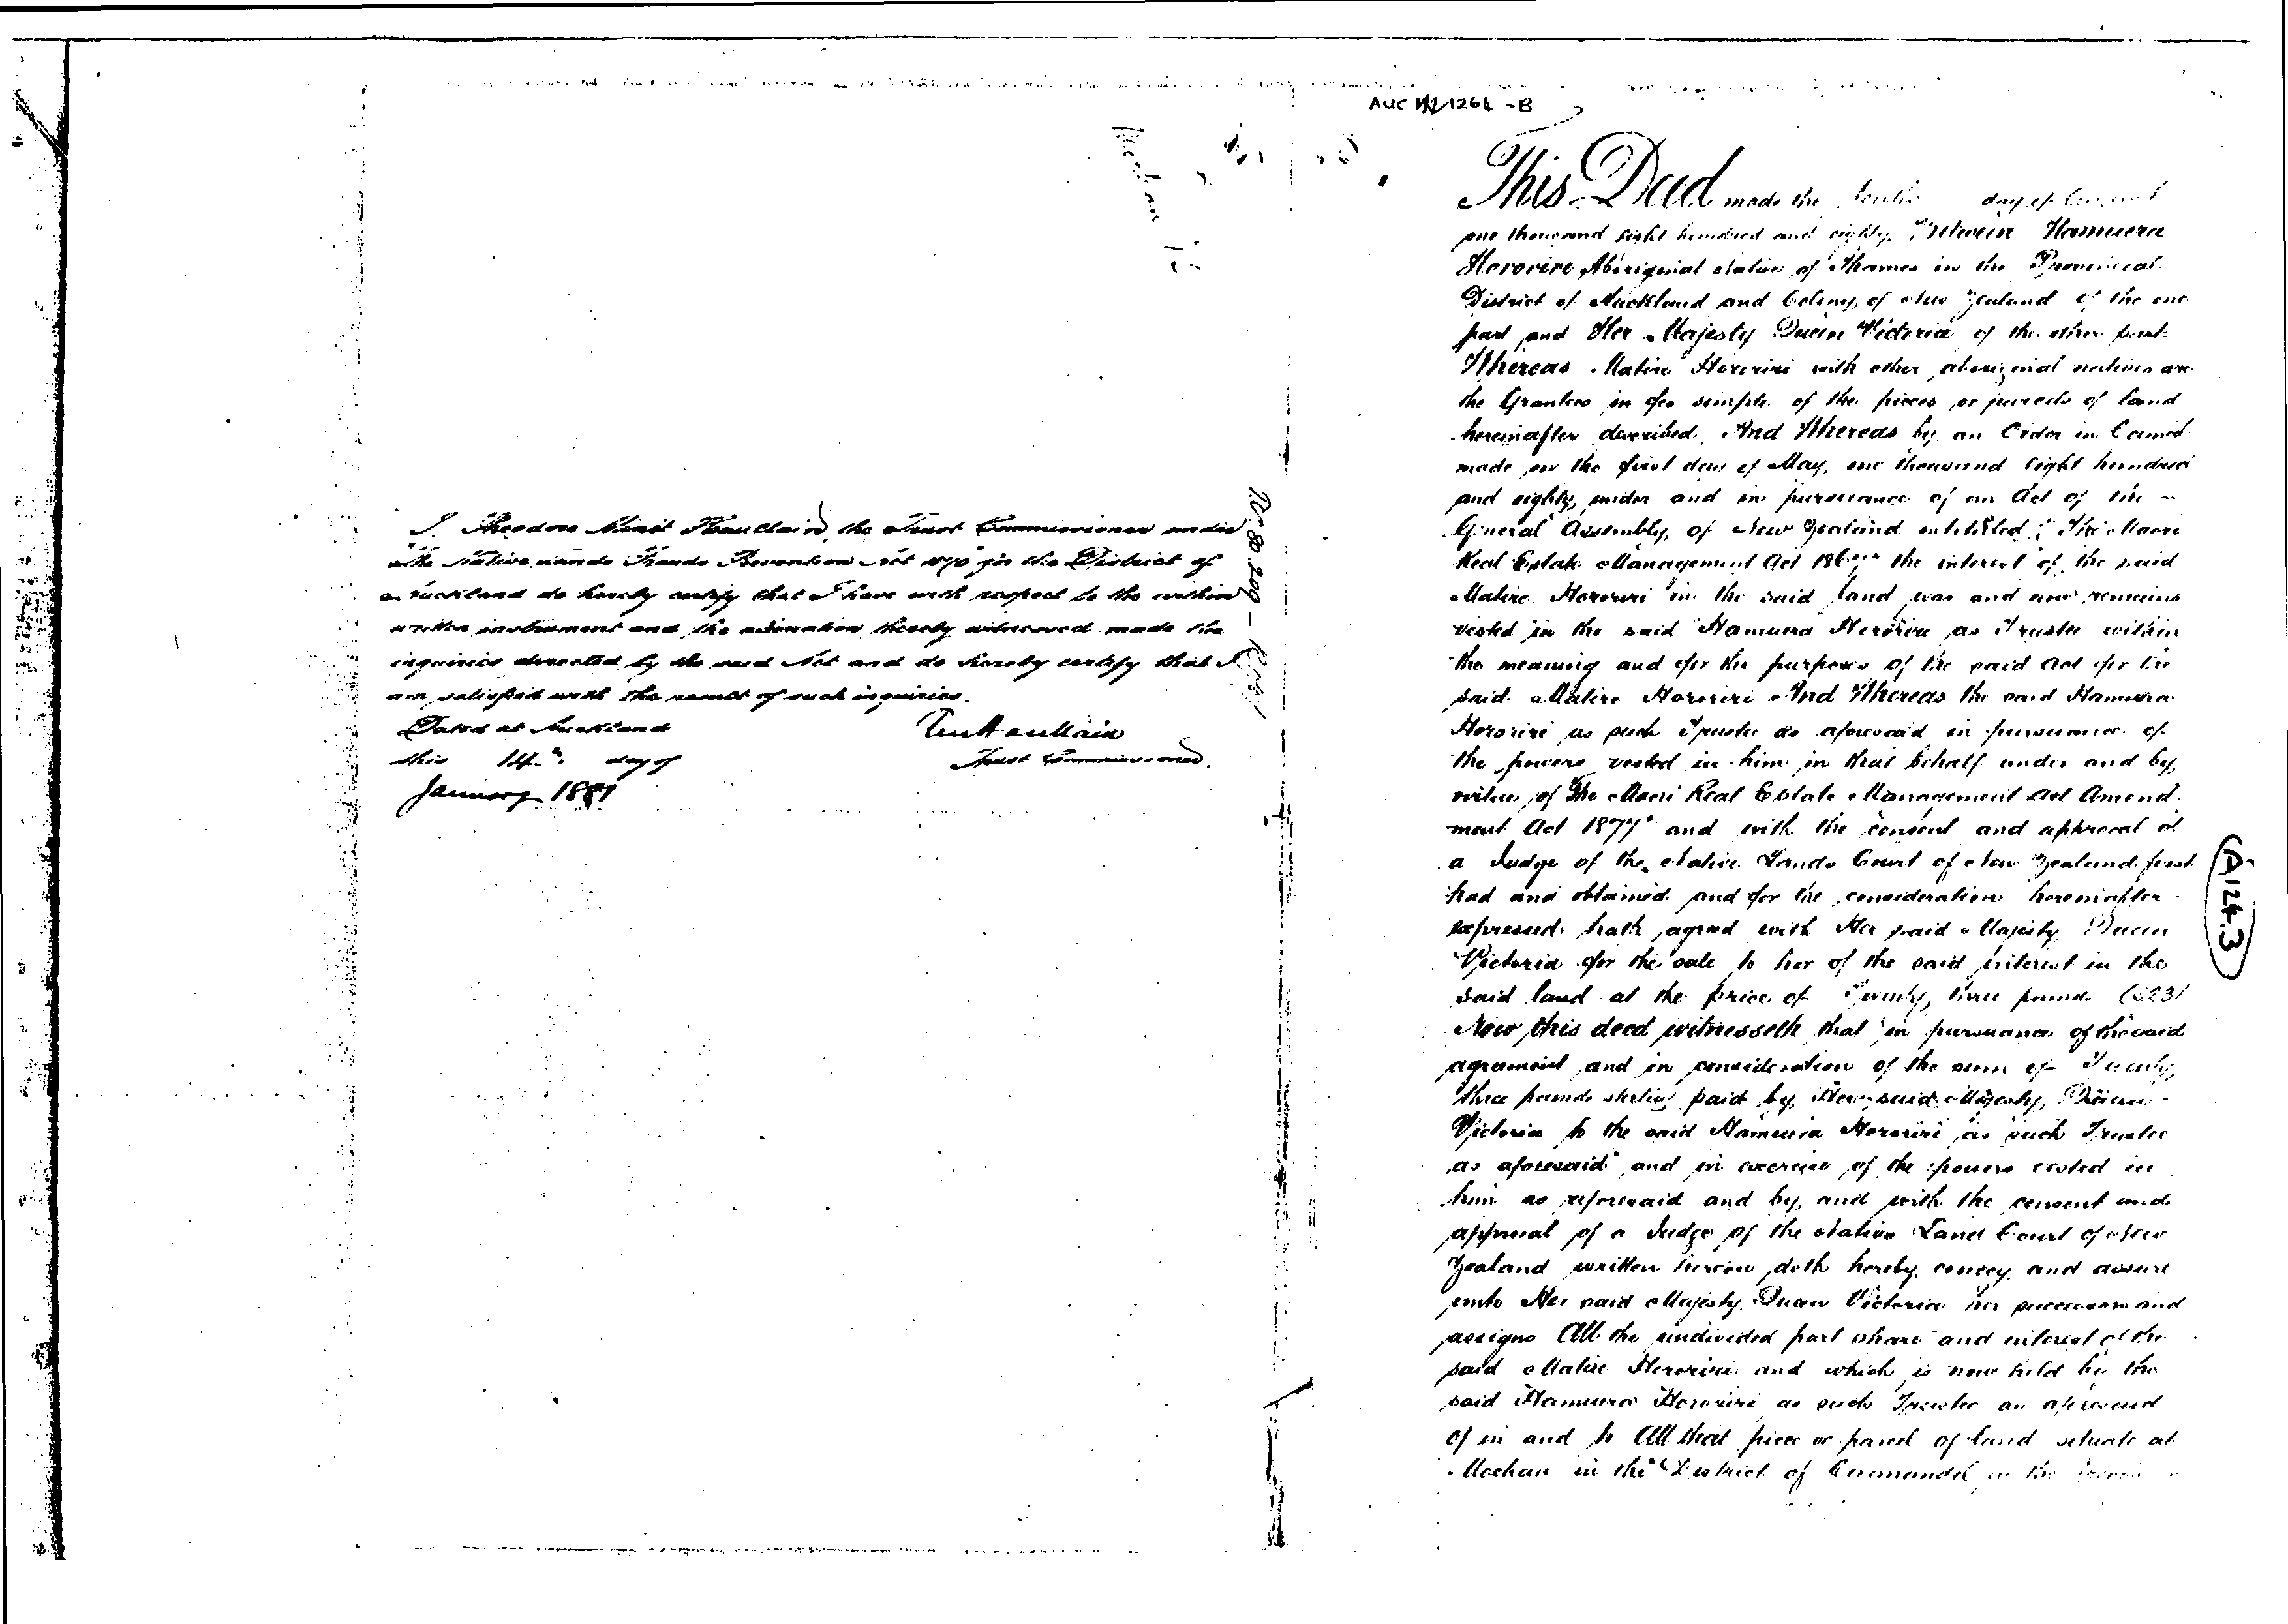 I Theodore Minet Haultain, the Trust Commissioner under
the Native Lands Frauds Prevention Act 1870 for the District of
Auckland do hereby certify that I have with respect to the within
written instrument and the alienation thereby witnessed made the
inquiries directed by the said Act and do hereby certify that I
am satisfied with the result of such inquiries.
Dated at Auckland
this 14th day of
January 1881
TM Haultain
Trust Commissioner.
AUC 1264 - B
This Deed made the tenth day of
one thousand eight hundred and eighty Between Hamuera
Hororiri Aboriginal Native of Thames in the Provincial
District of Auckland and Colony of New Zealand of the one
part and Her Majesty Queen Victoria of the other part
Whereas Matire Hororiri with other aboriginal natives are
the Grantees in fee simple of the pieces or parcels of land
hereinafter described And Whereas by an Order in Council
made on the first day of May, one thousand eight hundred
and eighty, under and in pursuance of an Act of the
General Assembly, of New Zealand intituled "The Maori
Real Estate Management Act 1867" the interest of the said
Matire Hororiri in the said land was and now remains
vested in the said Hamuera Hororiri as Trustee within
the meaning and for the purposes of the said Act for the
said Matire Hororiri And Whereas the said Hamuera
Hororiri as such Trustee as aforesaid in pursuance of
the powers vested in him in that behalf under and by
virtue of The Maori Real Estate Management Act Amend-
ment Act 1877" and with the consent and approval of
a Judge of the Native Lands Court of New Zealand first
had and obtained and for the consideration hereinafter
expressed hath agreed with Her said Majesty Queen
Victoria for the sale to her of the said interest in the
said land at the price of Twenty, three pounds (£23)
Now this deed witnesseth that in pursuance of the said
agreement and in consideration of the sum of Twenty,
three pounds sterling paid by, Her said Majesty, Queen
Victoria to the said Hamuera Hororiri as such Trustee
as aforesaid and in exercise of the powers vested in
him as aforesaid and by, and with the consent and
approval of a Judge of the Native Land Court of New
Zealand written hereon doth hereby, convey and assure
unto Her said Majesty Queen Victoria her successors and
assigns All the undivided part share and interest of the
said Matire Hororiri and which is now held by the
said Hamuera Hororiri as such Trustee as aforesaid
of in and to All that piece or parcel of land situate at
Moehau in the District of Coromandel in the
A124.3